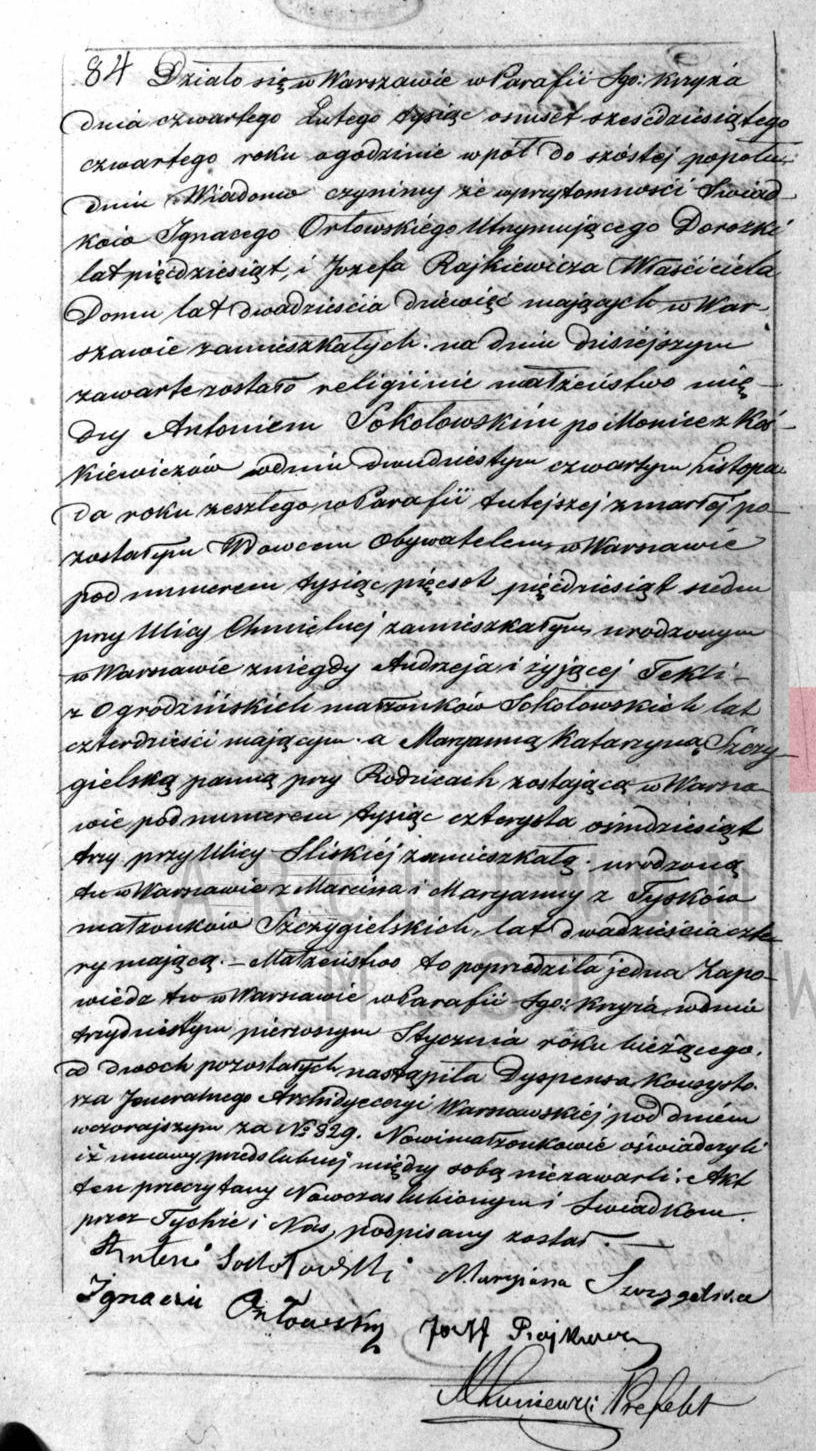 84 Działo się w Warszawie w Parafii Sgo: Krzyża
dnia czwartego Lutego tysiąc osmset szesćdziesiątego
czwartego roku o godzinie wpół do szóstej popołu-
dniu Wiadomo czynimy że w przytomności Swiad-
ków Ignacego Orłowskiego Utrzymującego Dorożki
lat pięćdziesiąt, i Józefa Rajkiewicza Właściciela
Domu lat dwadzieścia dziewięć mających w War-
szawie zamieszkałych. na dniu dzisiejszym
zawarte zostało religijnie małżeństwo mię-
dzy Antonim Sokołowskim po Monice z Koś-
kiewiczów w dniu dwudziestym czwartym Listopa-
da roku zeszłego w Parafii tutejszej zmarłej po-
zostałym Wdowcem Obywatelem, w Warszawie
pod numerem tysiąc pięcset pięćdziesiąt siedm
przy Ulicy Chmielnej zamieszkałym, urodzonym
w Warszawie z niegdy Andrzeja i żyjącej Tekli
z Ogrodzińskich małżonków Sokołowskich lat
czterdzieści mającym. a Maryanną Katarzyną Szczy-
gielską panną przy Rodzicach zostającą w Warsza-
wie pod numerem tysiąc czterysta ośmdziesiąt
trzy przy Ulicy Sliskiej zamieszkałą. urodzoną
tu w Warszawie z Marcina i Maryanny z Tysków
małżonków Szczygielskich, lat dwadzieścia czte-
ry mającą. – Małżeństwo to poprzedziła jedna Zapo-
wiedz tu w Warszawie w Parafii Sgo: Krzyża, w dniu
trzydziestym pierwszym Stycznia roku bieżącego.
a dwoch pozostałych nastąpiła Dyspensa Konsysto-
rza Jeneralnego Archidyecezyi Warszawskiej pod dniem
wczorajszym za No 829. Nowi małżonkowie oświadczyli
iż umowy przedslubnej między sobą niezawarli. Akt
ten przeczytany Nowozaslubionym i Swiadkom.
przez Tychże i Nas, podpisany został.
Antoni Sokołowski Maryianna Szczygelska
Ignacy Orłowsky Józef Rajkiewicz
Prefekt
ARCHIWUM